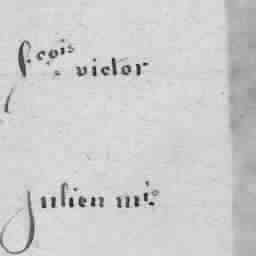 fcois victor
Julien mis